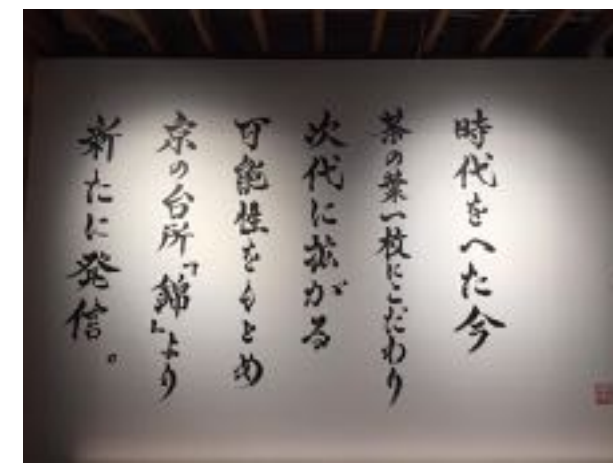 時代をへた今
茶の葉一枚にこだわり
次代に拡がる
可能性をもとめ
京の台所「錦」より
新たに発信。